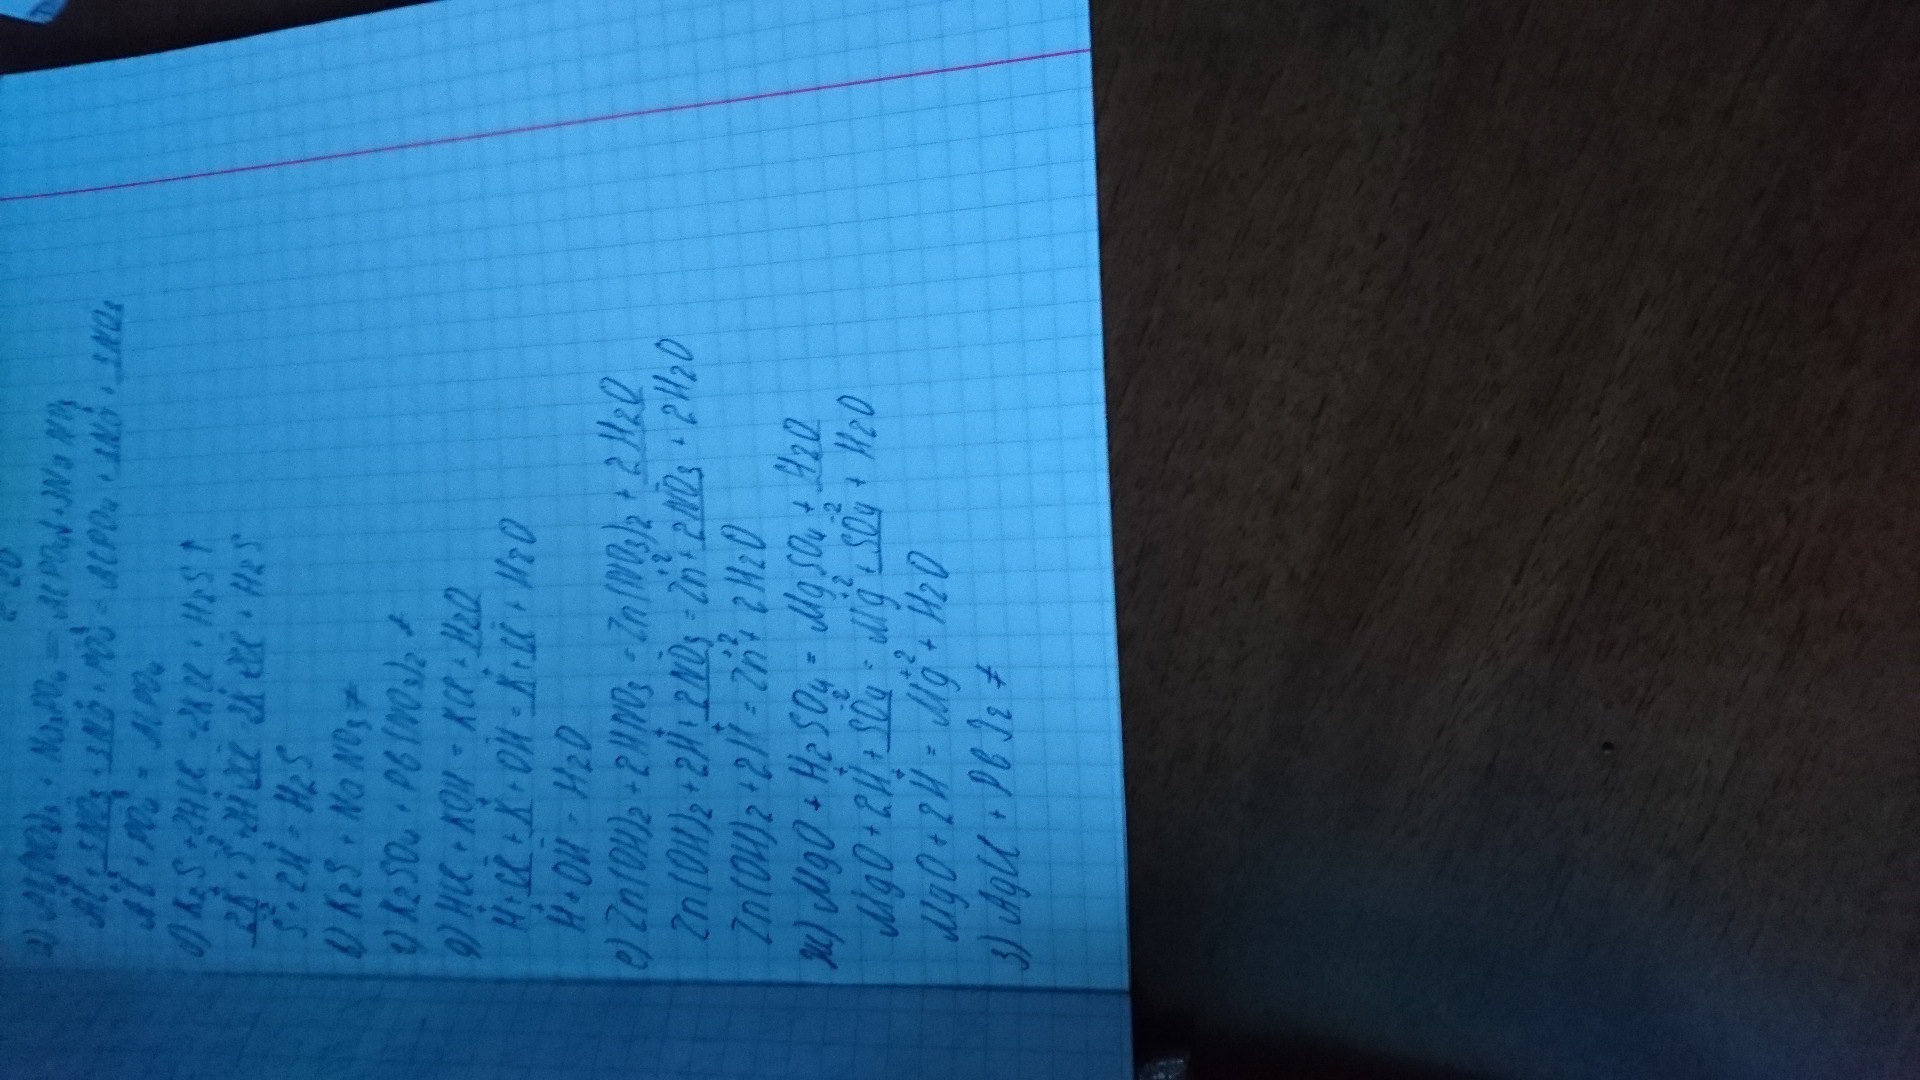 а) Al(NO3)3 + Na3PO4 = AlPO4↓ + 3NaNO3
Al⁺³ + PO4⁻³ = AlPO4
б) K2S + 2HCl = 2KCl + H2S↑
2K⁺ + S⁻² + 2H⁺ + 2Cl⁻ = 2K⁺ + 2Cl⁻ + H2S
S⁻² + 2H⁺ = H2S
в) K2S + NaNO3 ≠
г) K2SO4 + Pb(NO3)2 ≠
д) HCl + KOH = KCl + H2O
H⁺ + Cl⁻ + K⁺ + OH⁻ = K⁺ + Cl⁻ + H2O
H⁺ + OH⁻ = H2O
е) Zn(OH)2 + 2HNO3 = Zn(NO3)2 + 2H2O
Zn(OH)2 + 2H⁺ + 2NO3⁻ = Zn⁺² + 2NO3⁻ + 2H2O
Zn(OH)2 + 2H⁺ = Zn⁺² + 2H2O
ж) MgO + H2SO4 = MgSO4 + H2O
MgO + 2H⁺ + SO4⁻² = Mg⁺² + SO4⁻² + H2O
MgO + 2H⁺ = Mg⁺² + H2O
з) AgCl + PbI2 ≠